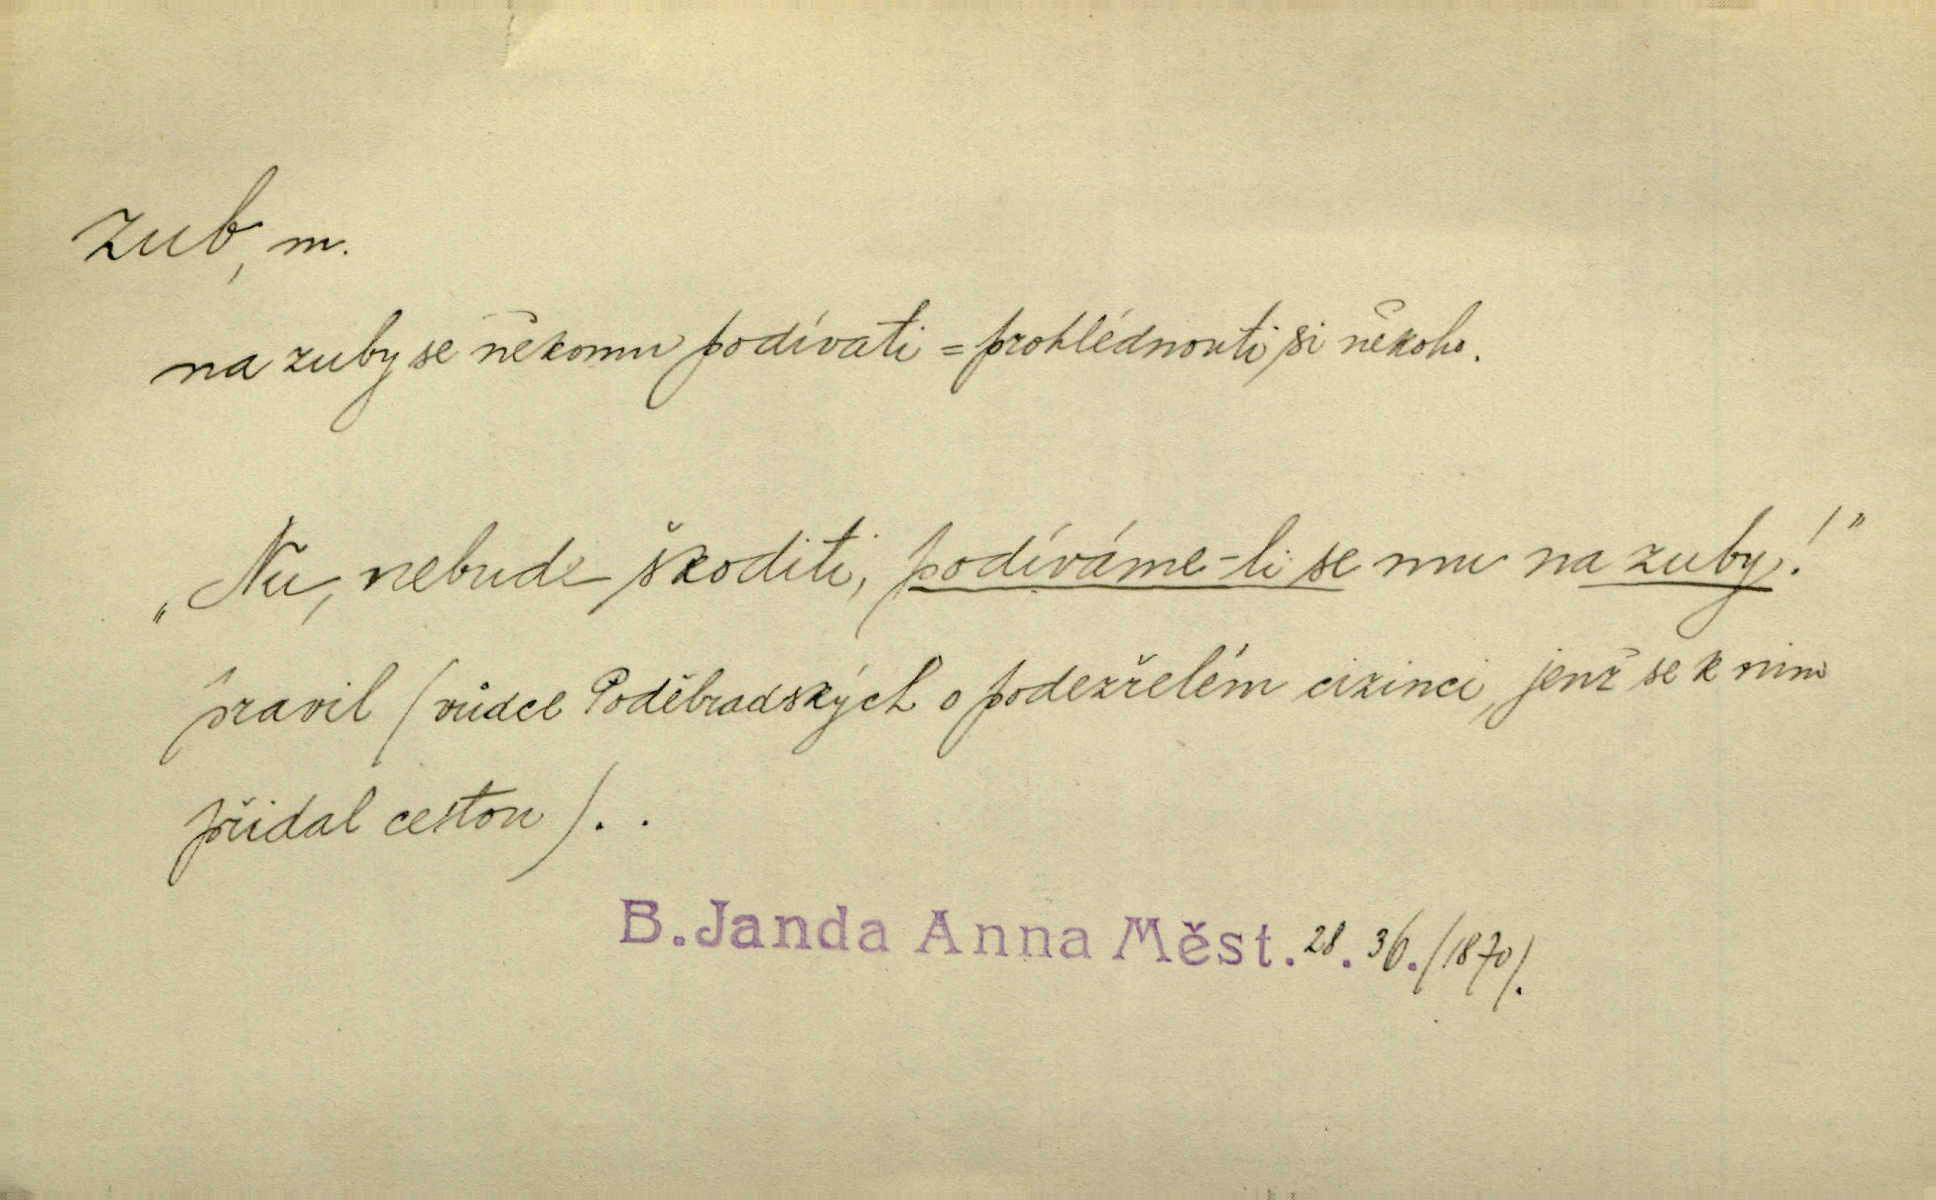 zub, m.
na zuby se někomu podívati = prohlédnouti si někoho.
„Nu, nebude škoditi, podíváme-li se mu na zuby!"
pravil (vůdce Poděbradských o podezřelém cizinci, jenž se k nim
přidal cestou). .
B. Janda Anna Měst. 28. 36. (1870).